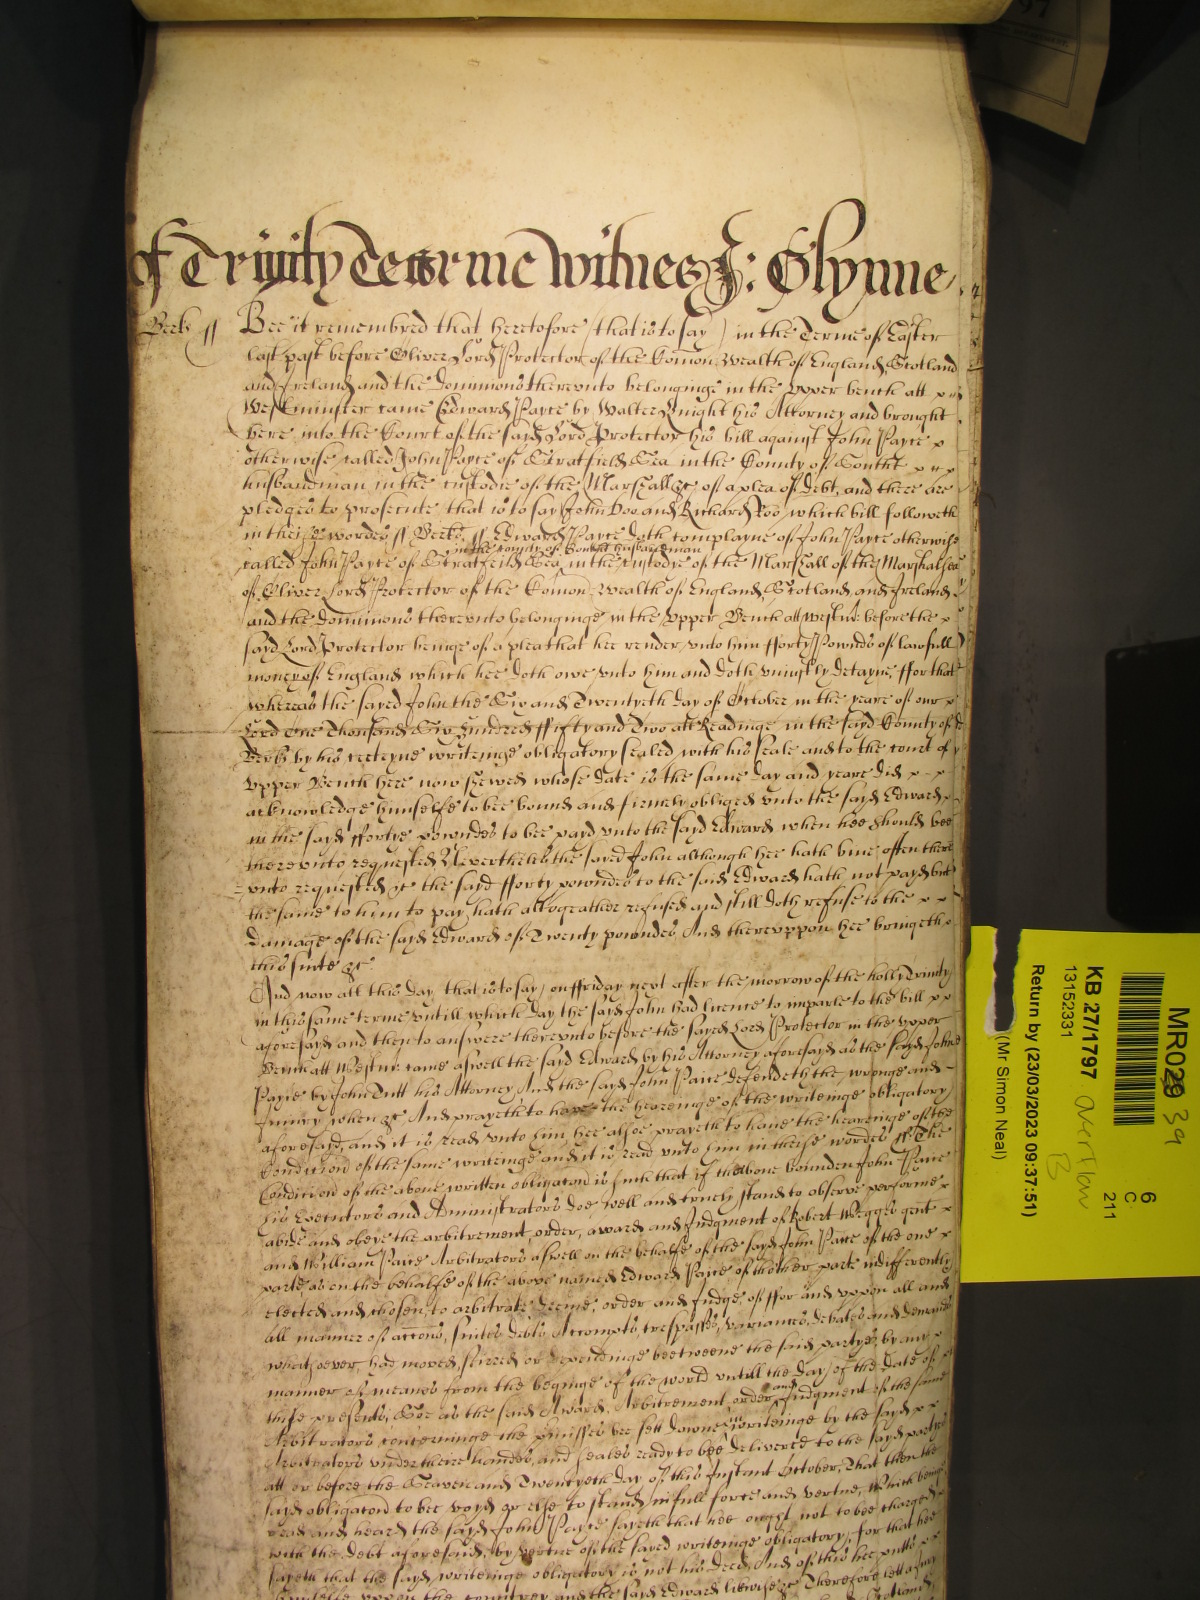 97
of Trinity Tearme Witnes J: Glynne
Berks ss Bee it remembred that heretofore (that is to say) in the Terme of Easter
last past before Oliver Lord Protector of the Comon Wealth of England, Scotland
and Ireland and the Dominions thereunto belonginge in the upper bench att x x
Westminster came Edward Payce by Walter Knight his Attorney and brought
here into the Court of the sayd Lord Protector his bill against John Payce x
otherwise called John Payce of Stratfield Sea in the County of Southt x x x
husbandman in the custodie of the Marshall &c of a plea of Debt, and there are
pledges to prosecute that is to say John Doo and Richard Roo, which bill followeth
in theise wordes ss Berks ss Edward Payce doth complayne of John Payce otherwise
in the County of Southt husbandman
called John Payce of Stratfeild Sea in the custodye of the Marshall of the Marshalsea
of Oliver Lord Protector of the Comon Wealth of England, Scotland, and Ireland
and the Dominions thereunto belonginge in the upper Bench att Westmr before the x
sayd Lord Protector beinge of a plea that hee render unto him fforty Pownds of lawfull
money of England which hee doth owe unto him and doth uniustly detayne, ffor that
whereas the sayed John the Six and Twentyeth day of October in the yeare of our x
Lord One Thousand Six Hundred ffifty and Two att Readinge in the sayd County of
Berks by his certeyne writeinge obligatory sealed with his seale and to the court of
upper Bench here now shewed whose date is the same day and yeare did x - x
acknowledge himselfe to bee bound and firmely obliged unto the sayd Edward
in the sayd ffortye powndes to bee payd unto the sayd Edward when hee should bee
thereunto requested Neverthelesse the sayed John although hee hath bine often there
unto requested &c the sayd fforty powndes to the said Edward hath not payd but
the same to him to pay hath altogeather refused and still doth refuse to the x x
damage of the sayd Edward of Twenty powndes And thereuppon hee bringeth
this suite &c
And now att this day that is to say, on ffriday next after the morrow of the holly Trinity
in this same terme untill which day the sayd John had licence to imparle to the bill x x
aforesayd and then to answere thereunto before the sayed Lord Protector in the upper
Bench att Westmr came aswell the said Edward by his Attorney aforesayd as the sayd John
Payce by John Tutt his Attorney And the sayd John Paice defendeth the wronge and
Iniury when &c And prayeth to have the heareinge of the writeinge obligatory
aforesayd, and it is read unto him hee alsoe prayeth to have the heareinge of the
Condicion of the same writeinge and it is read unto him in theise wordes ss The
Condicion of the above written obligacon is such that if the above bounden John Paice
his Executors and Administrators doe well and truely stand to observe performe x
abide and obeye the arbitrement, order, award and Judgment of Robert Wigges gent x
and William Paice Arbitrators aswell on the behalfe of the sayd John Paice of the one x
parte, as on the behalfe of the above named Edward Paice of thother parte indifferently
elected and chosen to arbitrate deeme, order and Judge, of ffor and uppon all and
all manner of accons, suites debts Accompts, trespasses, variances, debates and demands
whatsoever had moved, stirred or dependinge beetweene the said partyes, by any x
manner of meanes from the begining of the world untill the day of the date of
these presents, Soe as the said Award, Arbitrement, order and Judgment of the same
Arbitrators concerninge the premisses bee sett downe in writeinge by the sayd x x
Arbitrators under there handes, and seales ready to bee delivered to the sayd partyes
att or before the Seaven and Twentyeth day of this Instant October, That then the
sayd obligacon to bee voyd or else to stand in full force and vertue, Which being
read and heard the sayd John Payce sayeth that hee ought not to bee charged
with the debt aforesaid, by vertue of the sayed writeinge obligatory, for that hee
sayeth that the sayd writeinge obligatory is not his deed, And of this hee putts x x
himselfe uppon the countrey and the said Edward likewise &c Therefore lett a Jury
MR029 39
KB 27/1797 Overflow
13152331
B
6
C
211
Return by (23/03/2023 09:37:51)
(Mr Simon Neal)